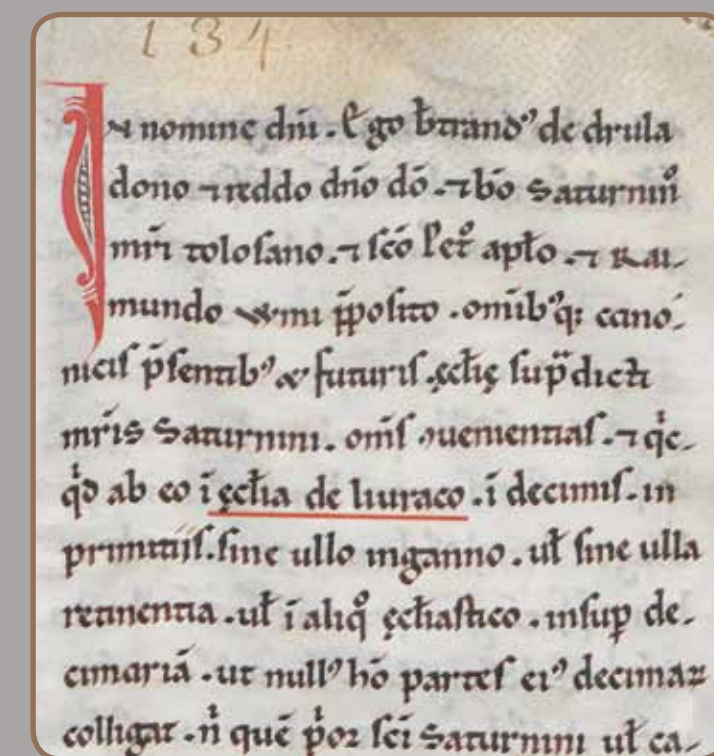 134
In nomine dni. Ego btrand9 de drula
dono ⁊ reddo dno do. ⁊ bo Saturnin
mri tolosano. ⁊ sco Pet aplo. ⁊ Rai-
mundo wmi pposito. omib9q; cano-
nicis psentib9 & futuris ęcclię supdicti
mris Saturnini. oms ↄuenientias. ⁊ qc-
qd ab eo ī ęclia de liuraco. ī decimis. in
primitiis. sine ullo inganno. ul sine ulla
retinentia. ul ī aliqo ęcliastico. insup de-
cimariā. ut null9 hō partes ei9 decimaꝝ
colligat. n quē por sci Saturnini ul ca-